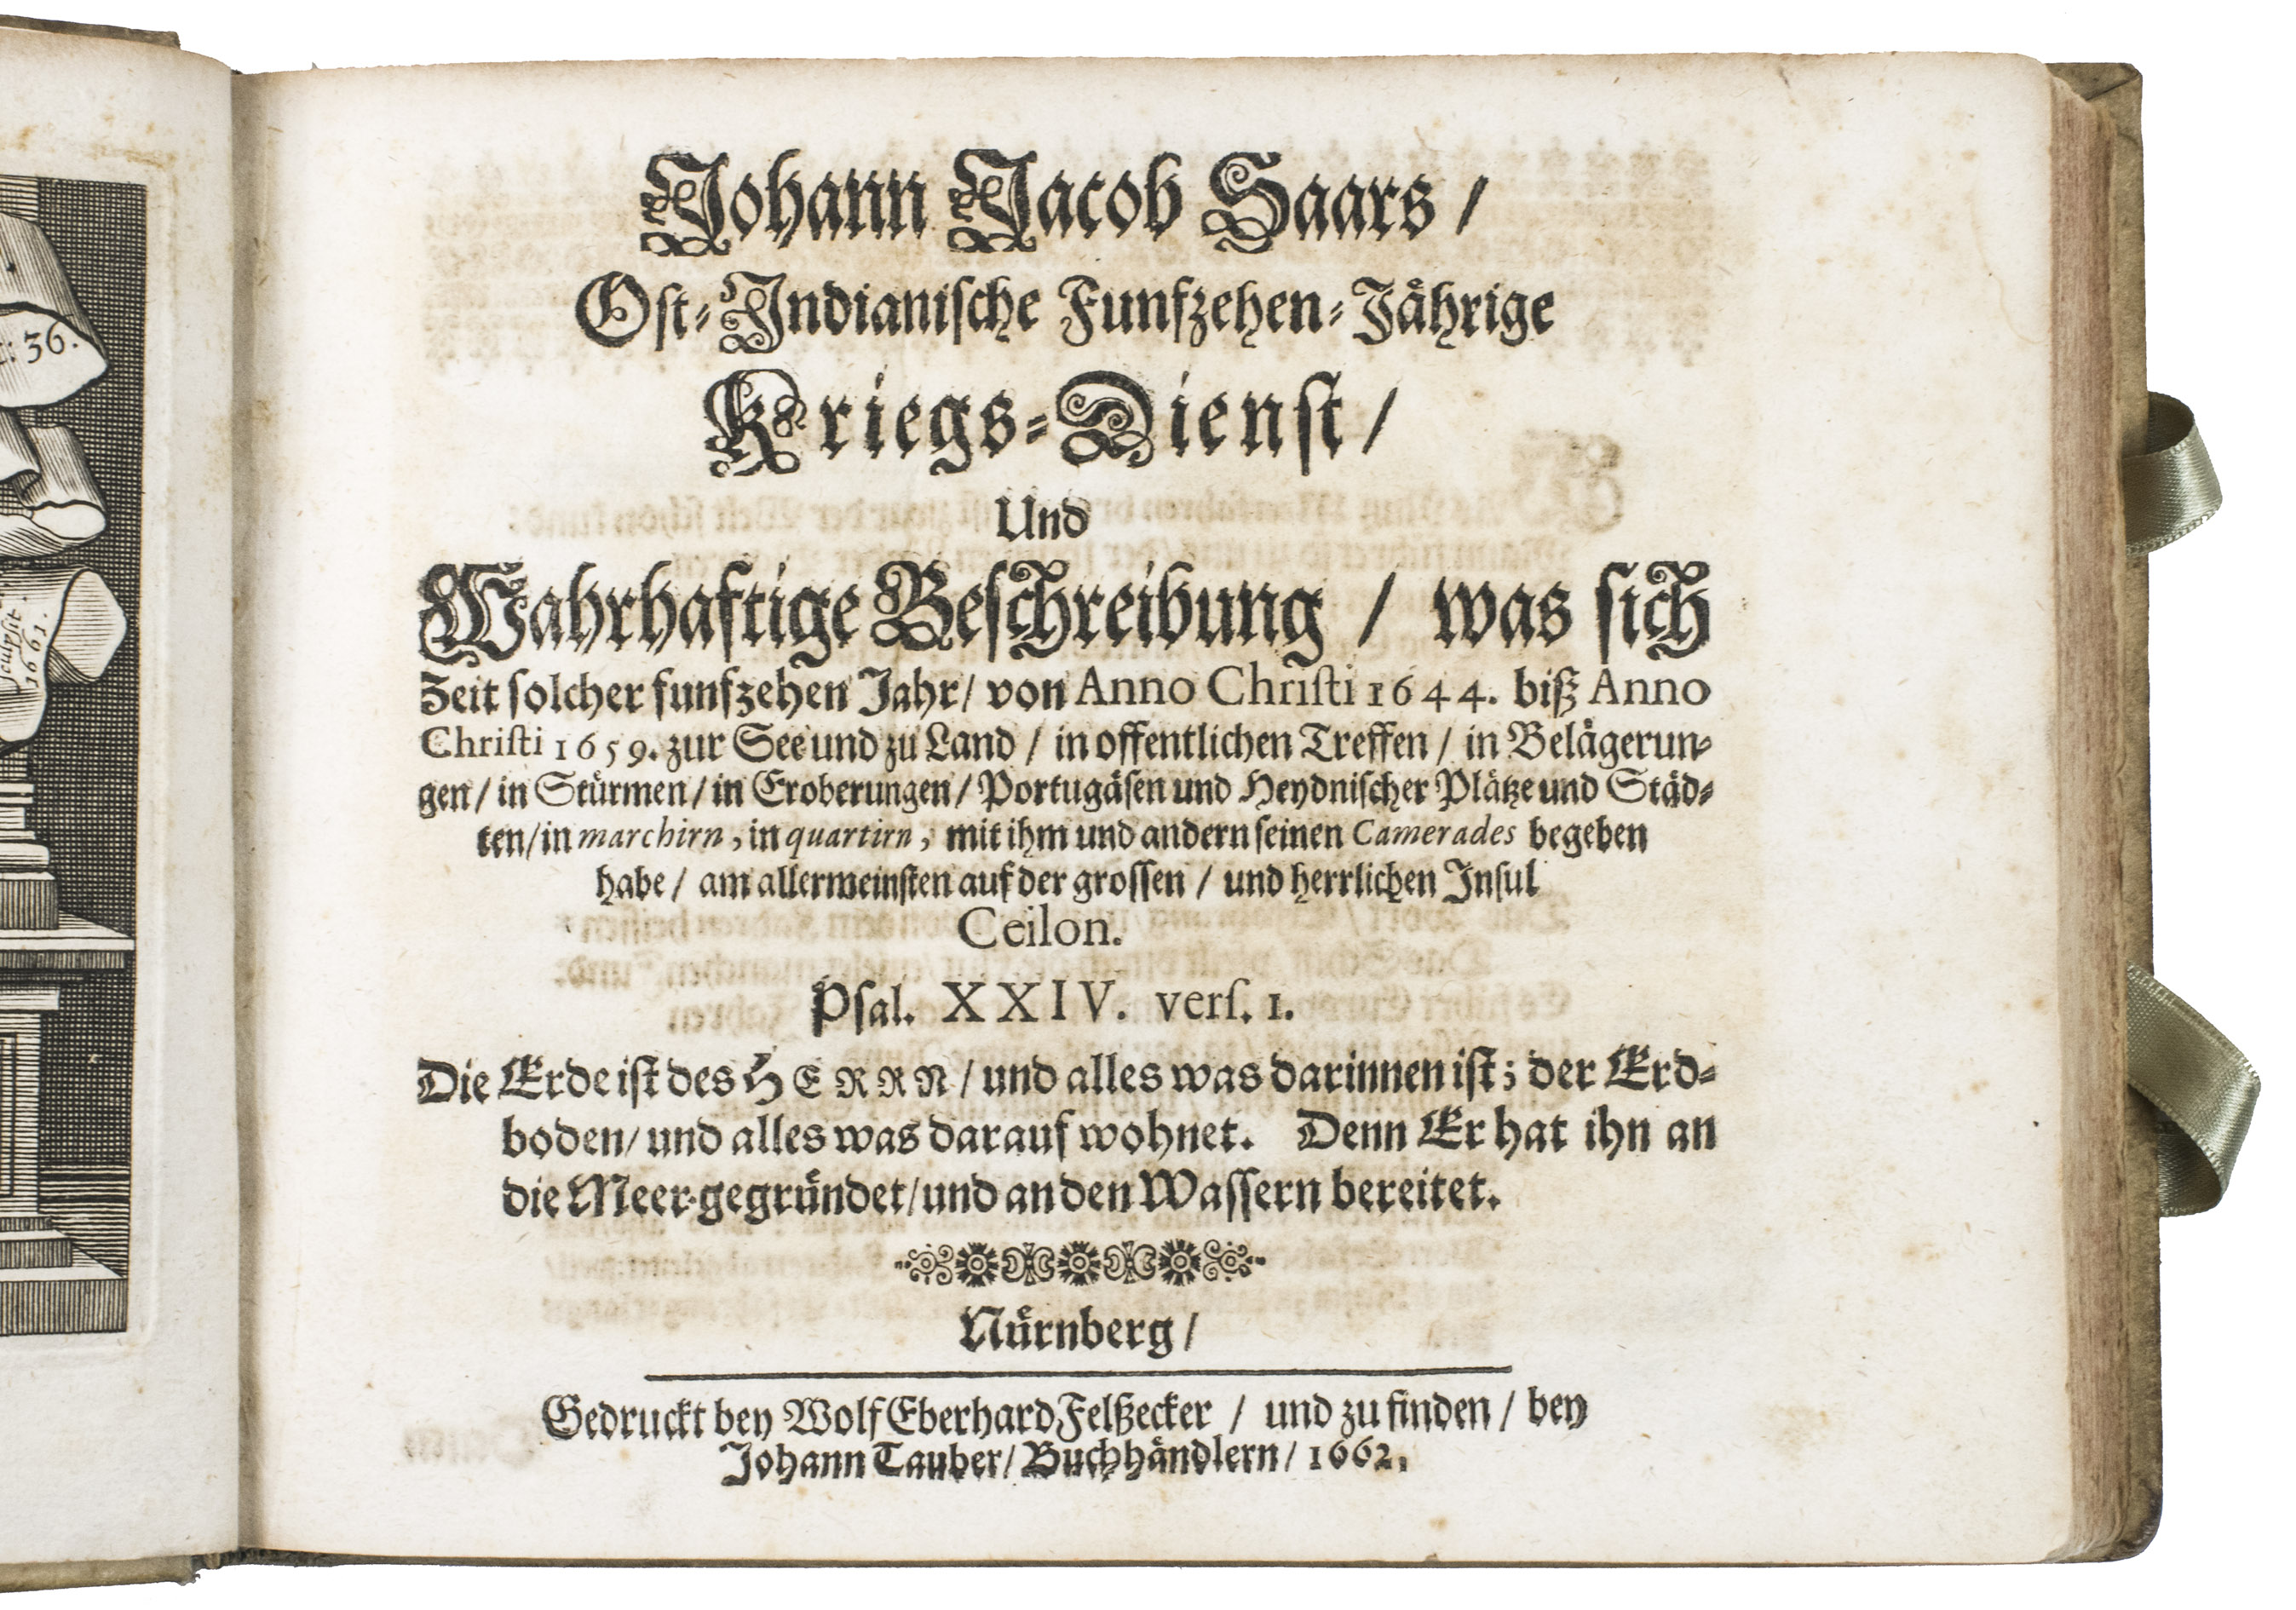 : 36.
sculpsit.
1661.
Johann Jacob Saars /
Ost-Indianische Funfzehen-Jährige
Kriegs-Dienst /
Und
Wahrhaftige Beschreibung / was sich
Zeit solcher funfzehen Jahr / von Anno Christi 1644. biß Anno
Christi 1659. zur See und zu Land / in offentlichen Treffen / in Belägerun-
gen / in Stürmen / in Eroberungen / Portugäsen und Heydnischer Plätze und Städ-
ten / in marchirn, in quartirn, mit ihm und andern seinen Camerades begeben
habe / am allermeinsten auf der grossen / und herrlichen Insul
Ceilon.
Psal. XXIV. vers. 1.
Die Erde ist des HERRN / und alles was darinnen ist; der Erd-
boden / und alles was darauf wohnet. Denn Er hat ihn an
die Meer gegründet / und an den Wassern bereitet.
Nürnberg /
Gedruckt bey Wolf Eberhard Felßecker / und zu finden / bey
Johann Tauber / Buchhändlern / 1662.